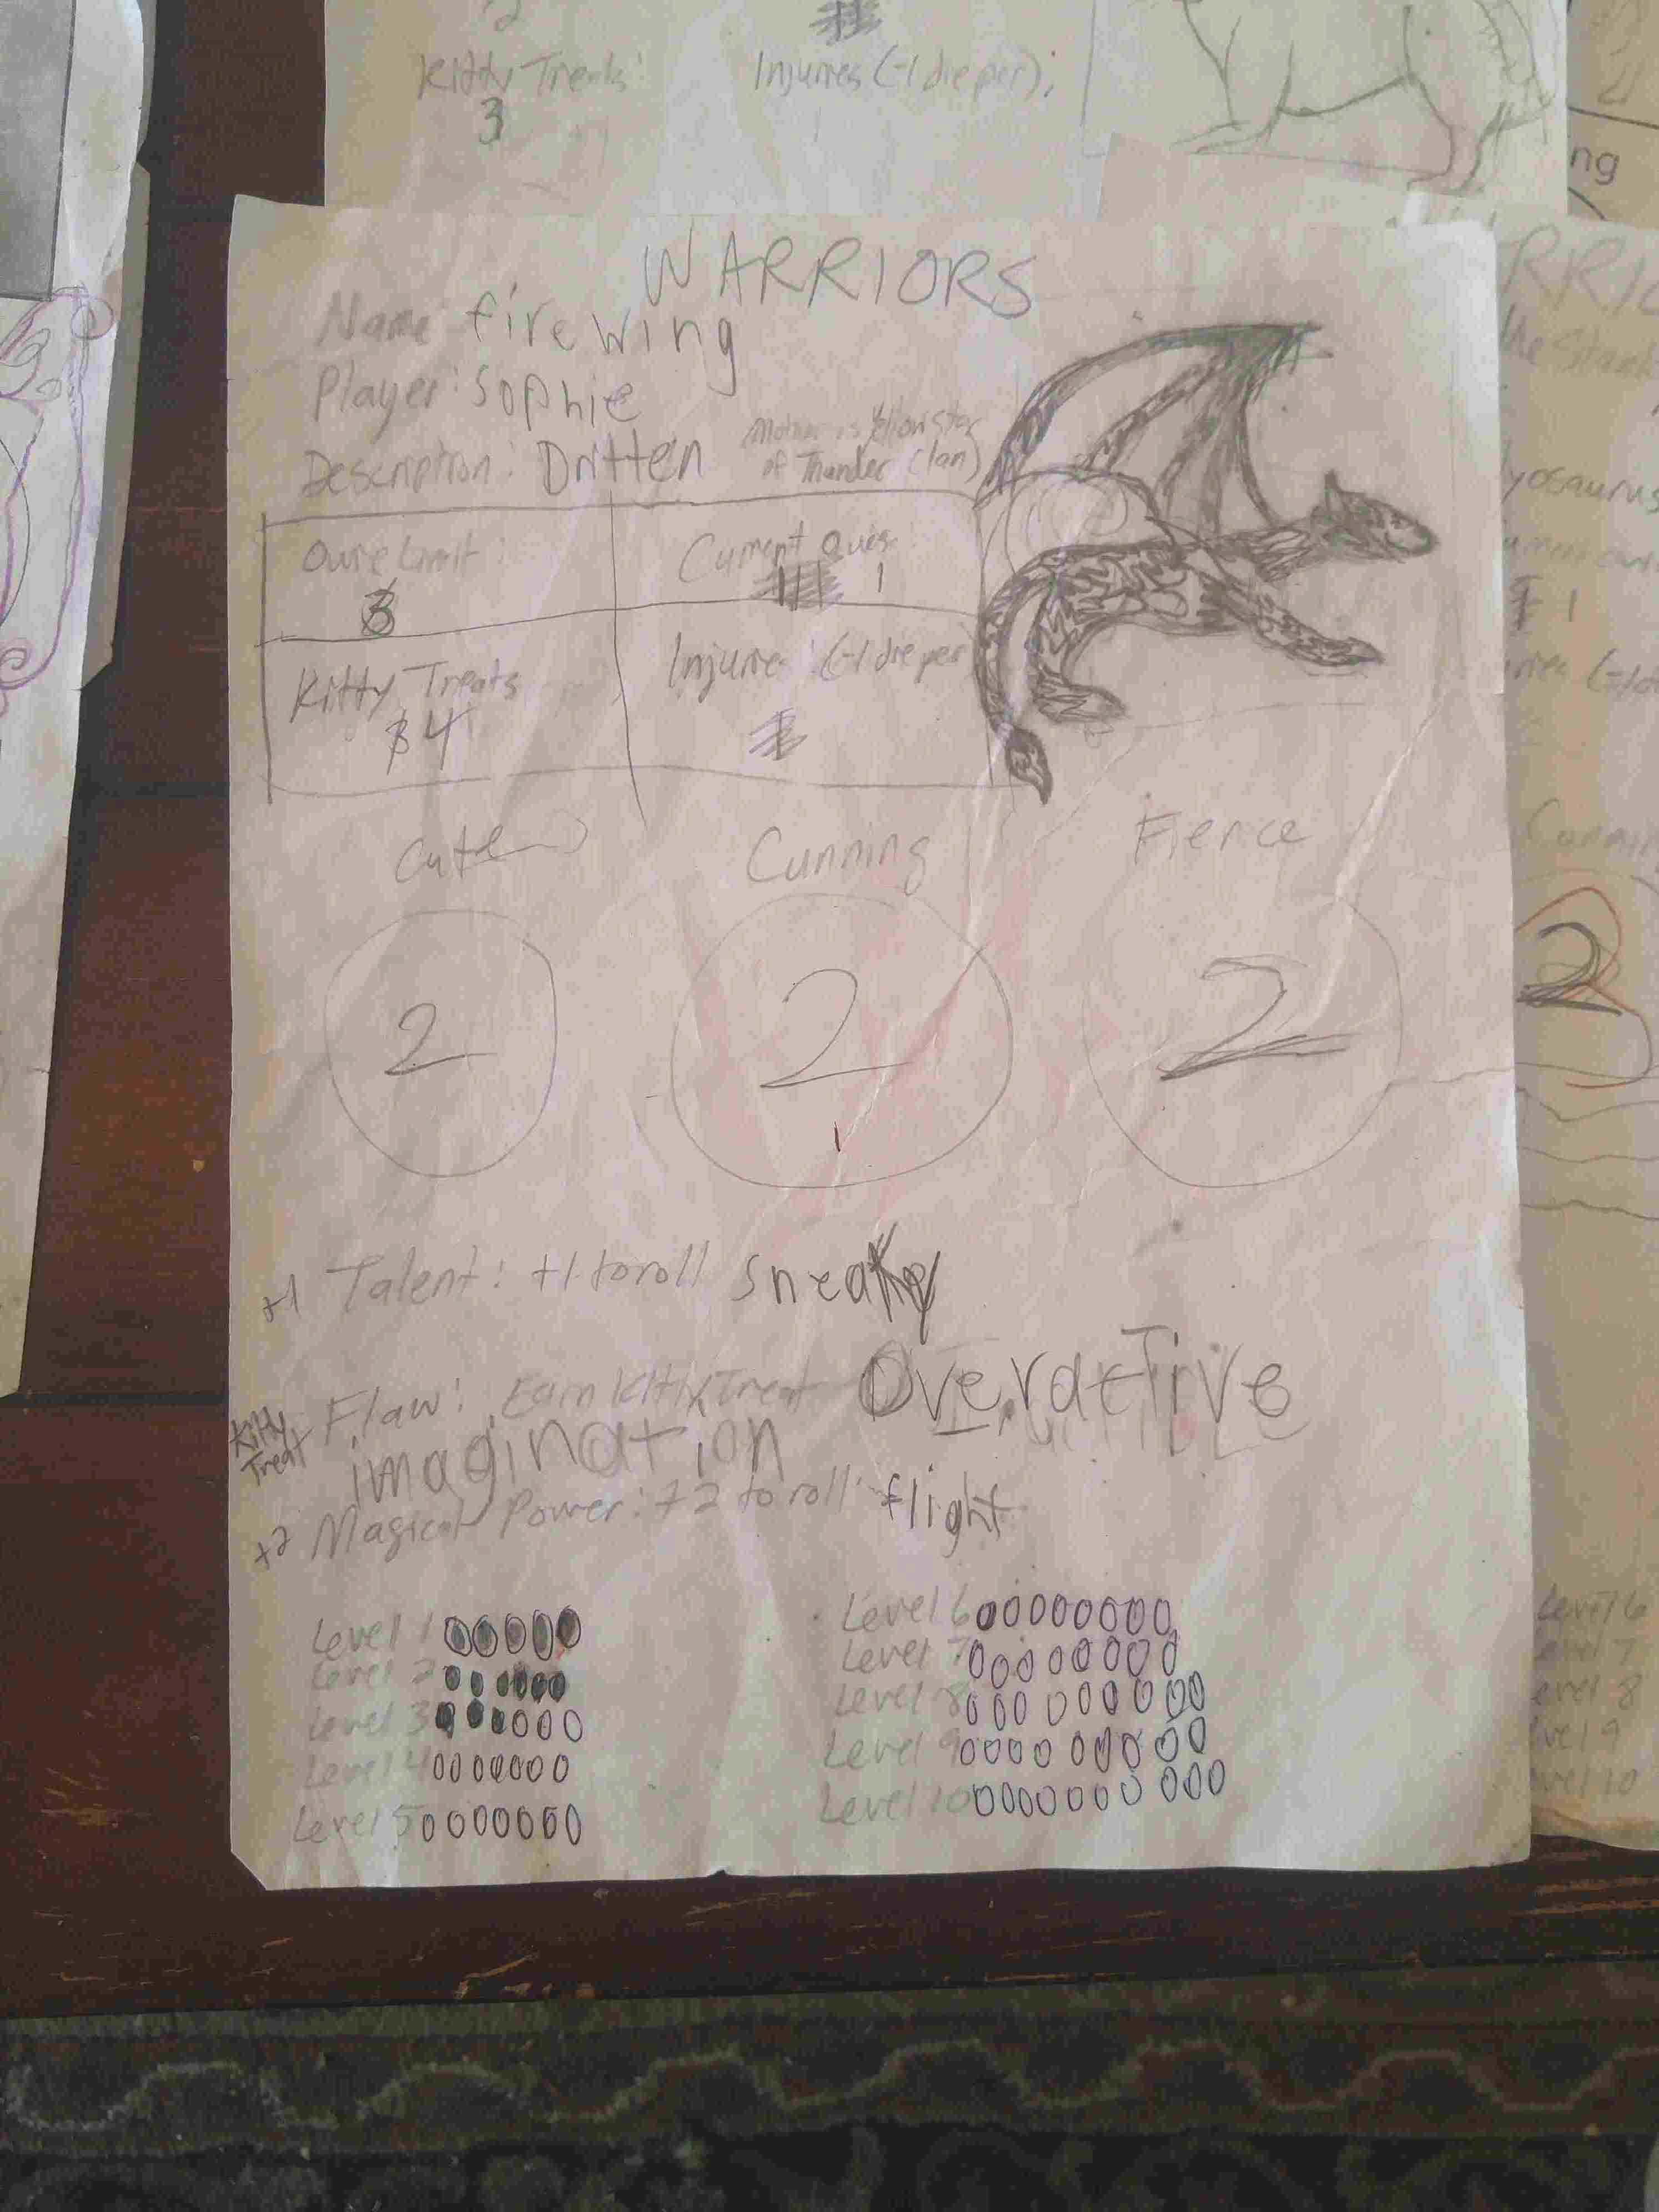 Kitty Treats:
3
Injuries (-1 die per):
ng
WARRIORS
Name: firewing
Player: Sophie
Description: Dritten
Mother is Yellowstar
of Thunder Clan)
Owie Limit:
Current Owies
1
Kitty Treats
4
Injuries: (-1 die per
Cute
Cunning
Fierce
2
2
2
1
+1 Talent: +1 to roll sneaky
Kitty Treat
Flaw: Earn Kitty Treat Overactive
imagination
+2 Magical Power: +2 to roll: flight
Level 1
Level 2
Level 3
Level 4
Level 5
Level 6
Level 7
Level 8
Level 9
Level 10
RRIO
yosaurus
1
2
Level 6
Level 7
evel 8
vel 9
vel 10